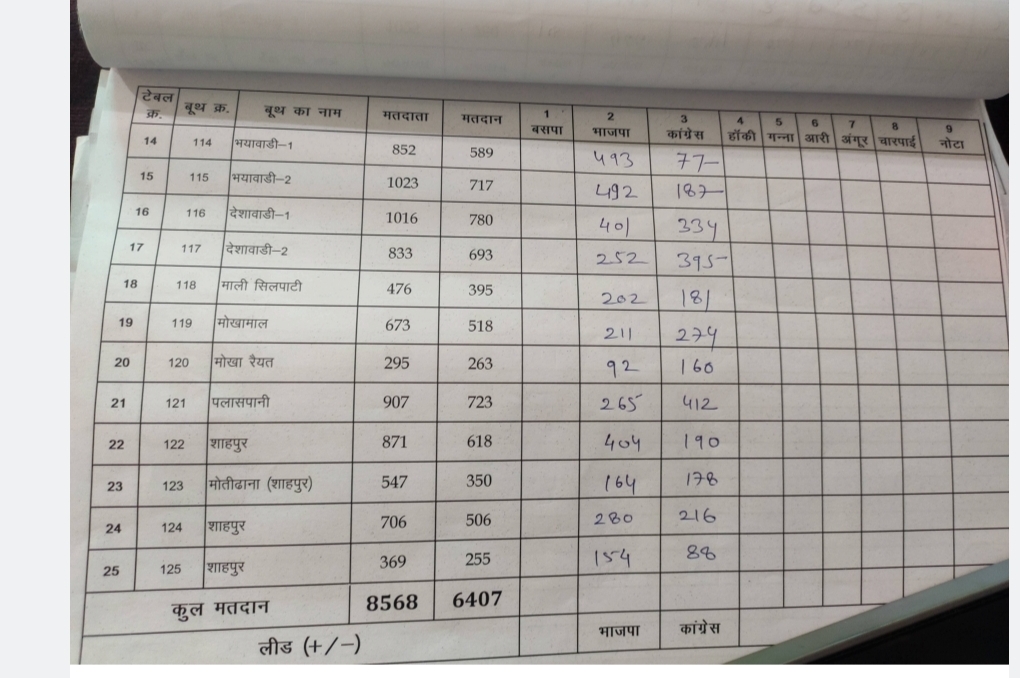 टेबल क्र. बूथ क्र. बूथ का नाम मतदाता मतदान 1 बसपा 2 भाजपा 3 कांग्रेस 4 हॉकी 5 गन्ना 6 आरी 7 अंगूर 8 चारपाई 9 नोटा
14 114 भयावाडी-1 852 589 493 77
15 115 भयावाडी-2 1023 717 492 187
16 116 देशावाडी-1 1016 780 401 334
17 117 देशावाडी-2 833 693 252 395
18 118 माली सिलपाटी 476 395 202 181
19 119 मोखामाल 673 518 211 274
20 120 मोखा रैयत 295 263 92 160
21 121 पलासपानी 907 723 265 412
22 122 शाहपुर 871 618 404 190
23 123 मोतीढाना (शाहपुर) 547 350 164 178
24 124 शाहपुर 706 506 280 216
25 125 शाहपुर 369 255 154 88
कुल मतदान 8568 6407
लीड (+/-) भाजपा कांग्रेस